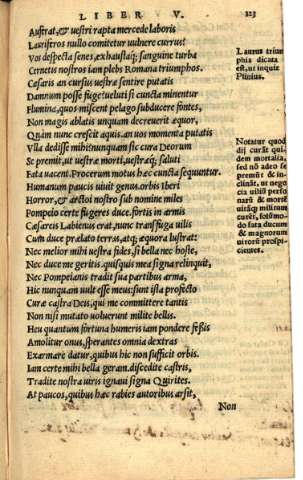 LIBER V. 123
Austrat, & uestri rapta mercede laboris
Lauriferos nullo comitetur uulnere currus?
Vos despecta senes, exhaustaq; sanguine turba
Cernetis nostros iam plebs Romana triumphos.
Cæsaris an cursus uestræ sentire putatis
Damnum posse fugæ? ueluti si cuncta minentur
Flumina, quos miscent pelago subducere fontes,
Non magis ablatis unquam decreuerit æquor,
Quàm nunc crescit aquis. an uos momenta putatis
Vlla dedisse mihi? nunquam sic cura Deorum
Se premit, ut uestræ morti, uestræq; saluti
Fata uacent. Procerum motus hæc cuncta sequuntur.
Humanum paucis uiuit genus. orbis Iberi
Horror, & arctoi nostro sub nomine miles
Pompeio certe fugeres duce. fortis in armis
Cæsareis Labienus erat, nunc transfuga uilis
Cum duce prælato terras, atq; æquora lustrat:
Nec melior mihi uestra fides, si bella nec hoste,
Nec duce me geritis. quisquis mea signa relinquit,
Nec Pompeianis tradit sua partibus arma,
Hic nunquam uult esse meus: sunt ista profecto
Curæ castra Deis, qui me committere tantis
Non nisi mutato uoluerunt milite bellis.
Heu quantum fortuna humeris iam pondere fessis
Amolitur onus, sperantes omnia dextras
Exarmare datur, quibus hic non sufficit orbis.
Iam certe mihi bella geram. discedite castris,
Tradite nostra uiris ignaui signa Quirites.
At paucos, quibus hæc rabies autoribus arsit,
Non
Laurus trium
phia dicata
est, ut inquit
Plinius.
Notatur quod
dij curāt qui
dem mortalia,
sed nō adeo se
premūt & in-
clināt, ut negō
cia uiliū perso
narū & morē
uitāq; militum
curēt, sōlum
do fata ducum
& magnorum
uirorū prospi-
cientes.